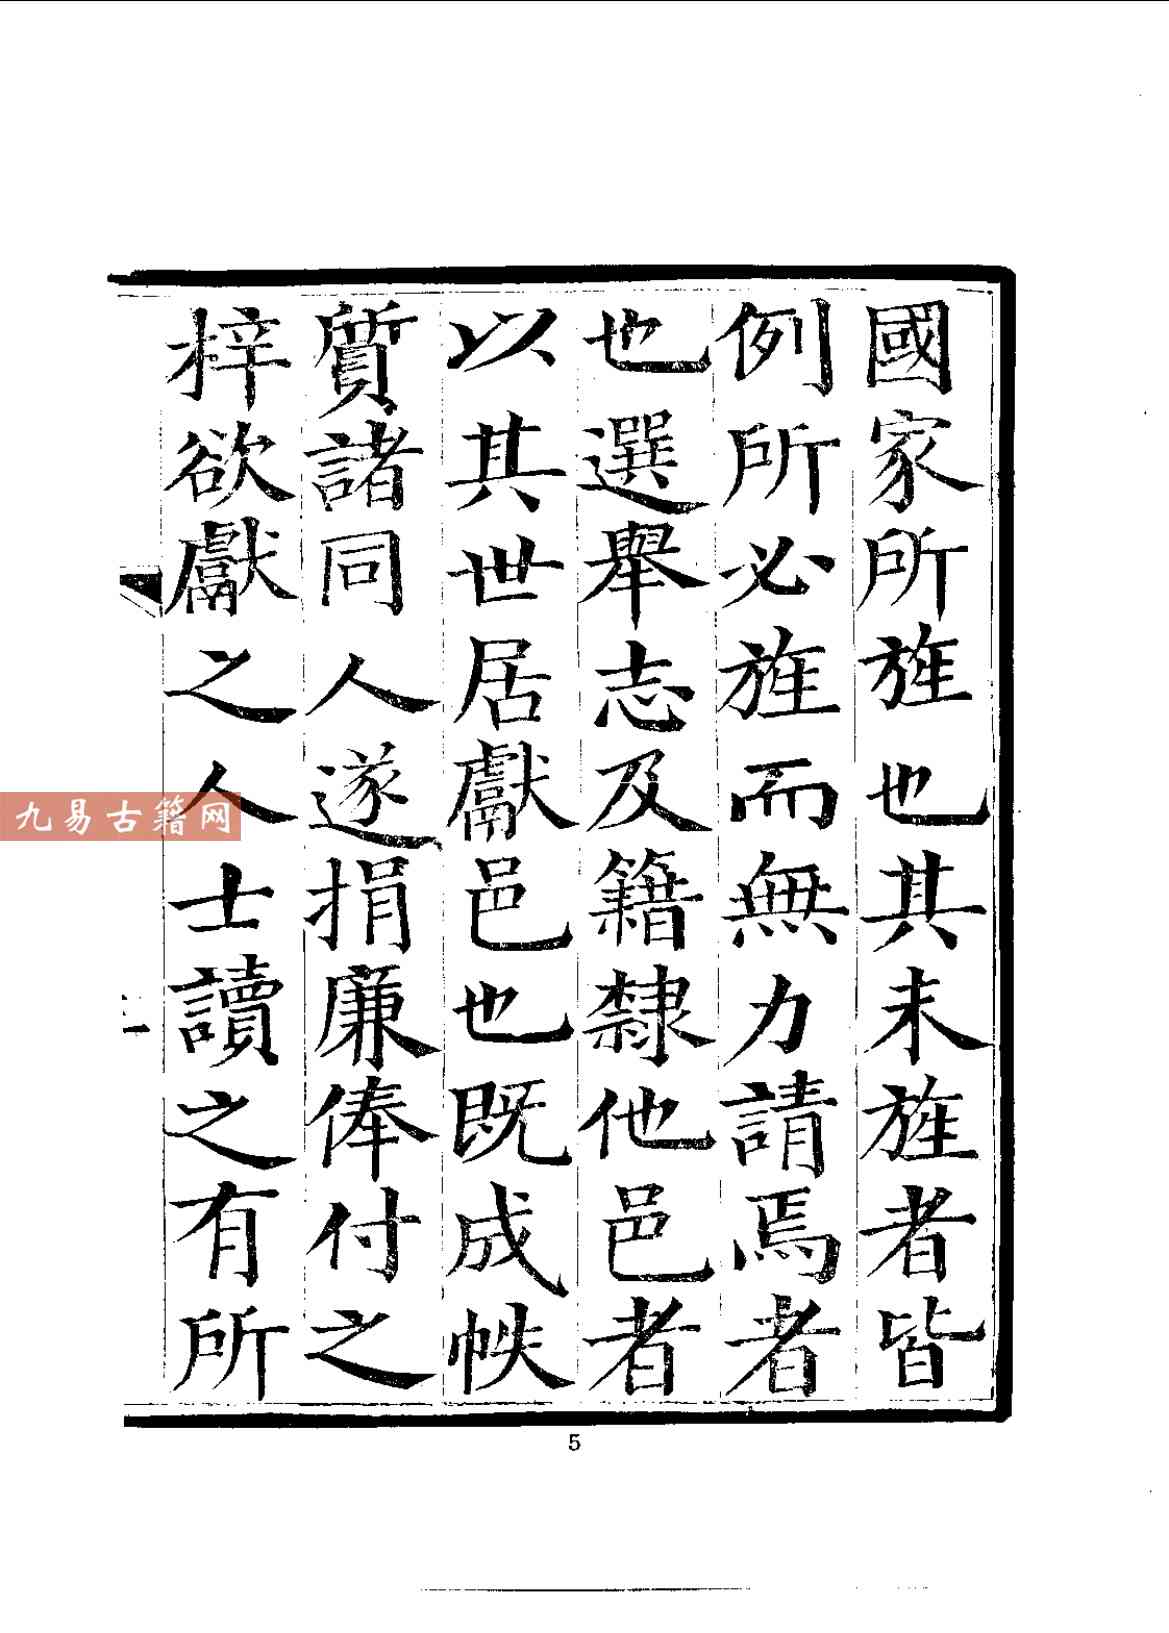 國家所旌也其未旌者皆
例所必旌而無力請焉者
也選舉志及籍隸他邑者
以其世居獻邑也既成帙
質諸同人遂捐廉俸付之
梓欲獻之人士讀之有所
二
5
九易古籍网